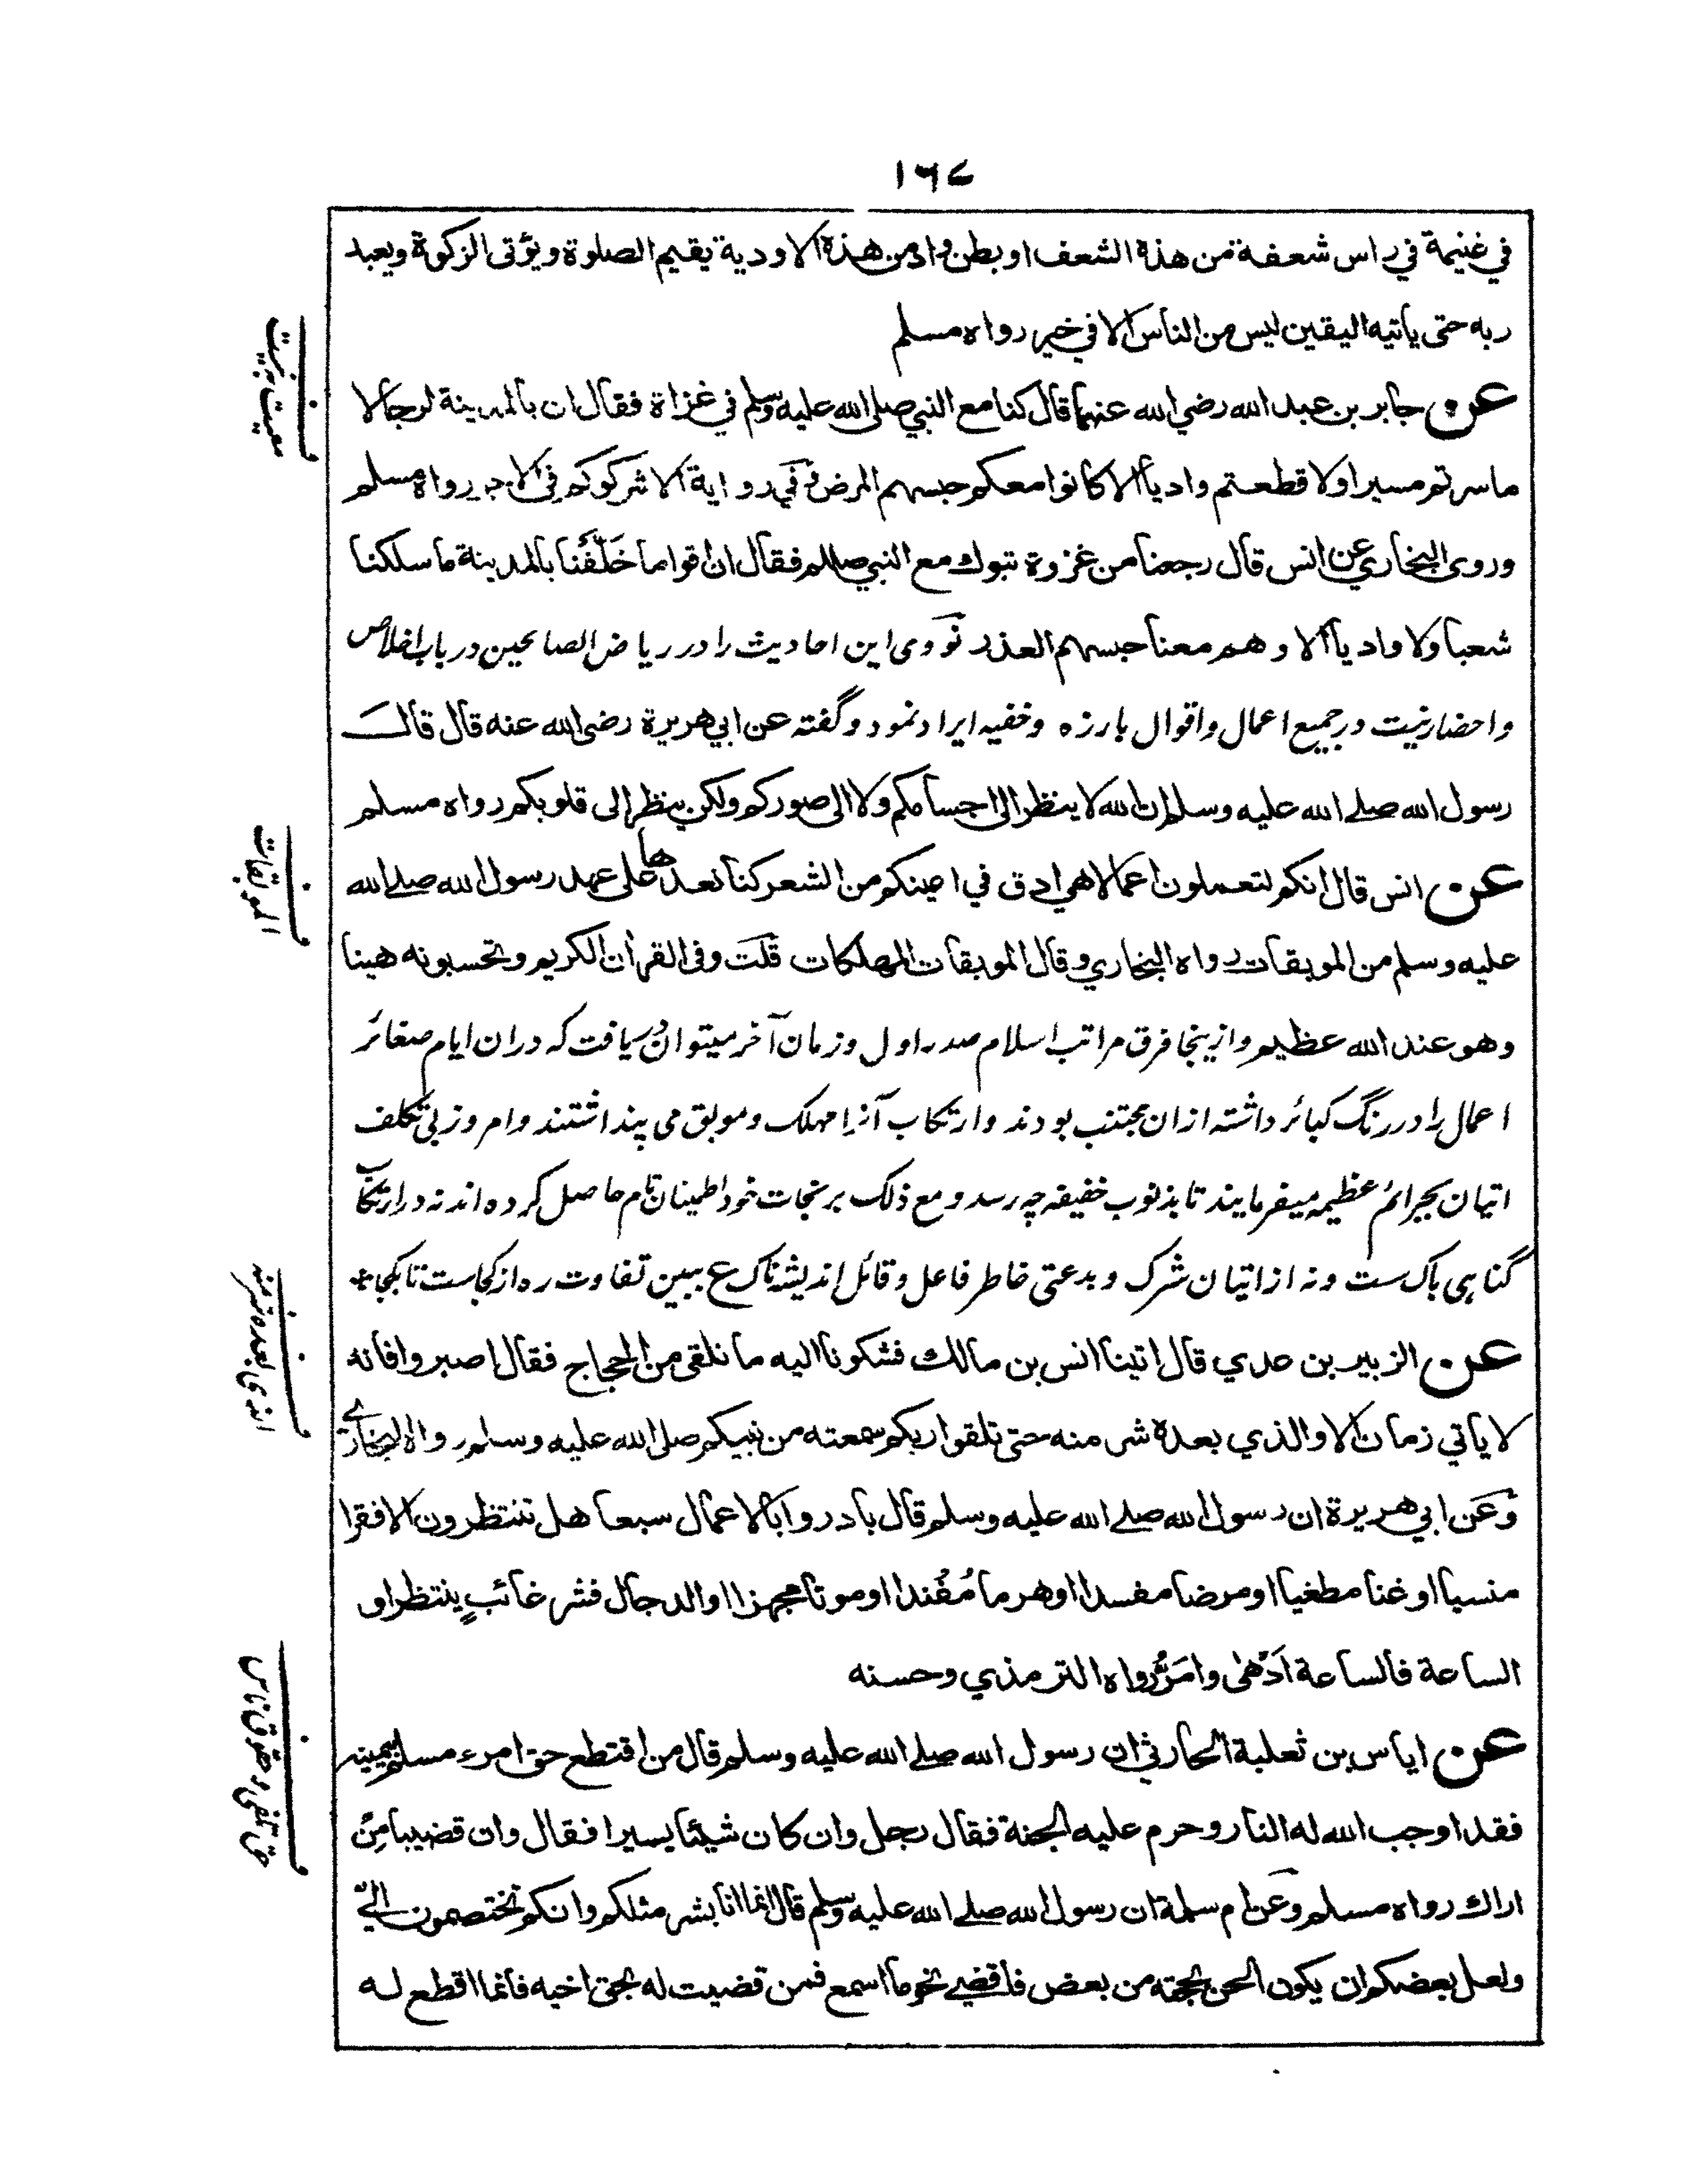 ۱۶۷
في غنيمة في راس شعفة من هذه الشعف او بطن واد من هذه الاودية يقيم الصلوة ويؤتى الزكوة ويعبد
ربه حتى ياتيه اليقين ليس من الناس الا في خير رواه مسلم
عن جابر بن عبد الله رضي الله عنهما قال كنا مع النبي صلى الله عليه وسلم في غزاة فقال ان بالمدينة لرجالا
ما سرتم مسيرا ولا قطعتم واديا الا كانوا معكم حبسهم المرض وفي رواية الا شركوكم في الاجر رواه مسلم
وروى البخاري عن انس قال رجعنا من غزوة تبوك مع النبي صللم فقال ان اقواما خَلْفَنا بالمدينة ما سلكنا
شعبا ولا واديا الا وهم معنا حبسهم العذر نووی این احادیث را در ریاض الصالحین در باب اخلاص
و احضار نیت در جمیع اعمال و اقوال بارزه و خفیه ایراد نموده و گفته عن ابي هريرة رضى الله عنه قال قال
رسول الله صلے الله عليه وسلم ان الله لا ينظر الى اجسامكم ولا الى صوركم ولكن ينظر الى قلوبكم رواه مسلم
عن انس قال انكم لتعملون اعمالا هي ادق في اعينكم من الشعر كنا نعدها على عهد رسول الله صلے الله
عليه وسلم من الموبقات رواه البخاري وقال الموبقات المهلكات قلت وفى القرآن الكريم وتحسبونه هينا
وهو عند الله عظيم و ازینجا فرق مراتب اسلام صدر اول و زمان آخر میتوان دریافت که دران ایام صغائر
اعمال را در رنگ کبائر داشته ازان مجتنب بودند و ارتکاب آنرا مهلک و موبق می پنداشتند و امروز بی تکلف
اتیان بجرائم عظیمه میفرمایند تا بذنوب خفیفه چه رسد و مع ذلک بر نجات خود اطمینان تام حاصل کرده اند نه در ارتکاب
گناهی باک ست و نه از اتیان شرک و بدعتی خاطر فاعل و قائل اندیشه ناک ع ببین تفاوت ره از کجاست تا بکجا *
عن الزبير بن عدي قال اتينا انس بن مالك فشكونا اليه ما نلقى من الحجاج فقال اصبروا فانه
لا ياتي زمان الا والذي بعده شر منه حتى تلقوا ربكم سمعته من نبيكم صلى الله عليه وسلم رواه البخاري
وعن ابي هريرة ان رسول الله صلے الله عليه وسلم قال بادروا بالاعمال سبعا هل تنتظرون الا فقرا
منسيا او غنا مطغيا او مرضا مفسدا او هرما مُفْنِدا او موتا مجهزا او الدجال فشر غائبٍ ينتظر او
الساعة فالساعة اَدْهٰى وامَرُّ رواه الترمذي وحسنه
عن اياس بن ثعلبة الحارثي ان رسول الله صلے الله عليه وسلم قال من اقتطع حق امرء مسلم بيمينه
فقد اوجب الله له النار وحرم عليه الجنة فقال رجل وان كان شيئا يسيرا فقال وان قضيبا مِنْ
اراك رواه مسلم وعن ام سلمة ان رسول الله صلے الله عليه وسلم قال انما انا بشر مثلكم وانكم تختصمون اليّ
ولعل بعضكم ان يكون الحن بحجته من بعض فاقضي نحو ما اسمع فمن قضيت له بحق اخيه فانما اقطع له
ف معیت بنیت
ف الموبقات
ف
ف حق تلفی و حقوق ناس